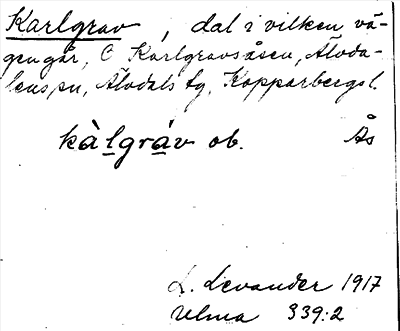 Karlgrav, dal i vilken vä-
gen går, C Karlgravsåsen, Älvda-
lens sn, Älvdals tg, Kopparbergs l.
kàlgráv ob. Ås
L. Levander 1917
Ulma 339:2